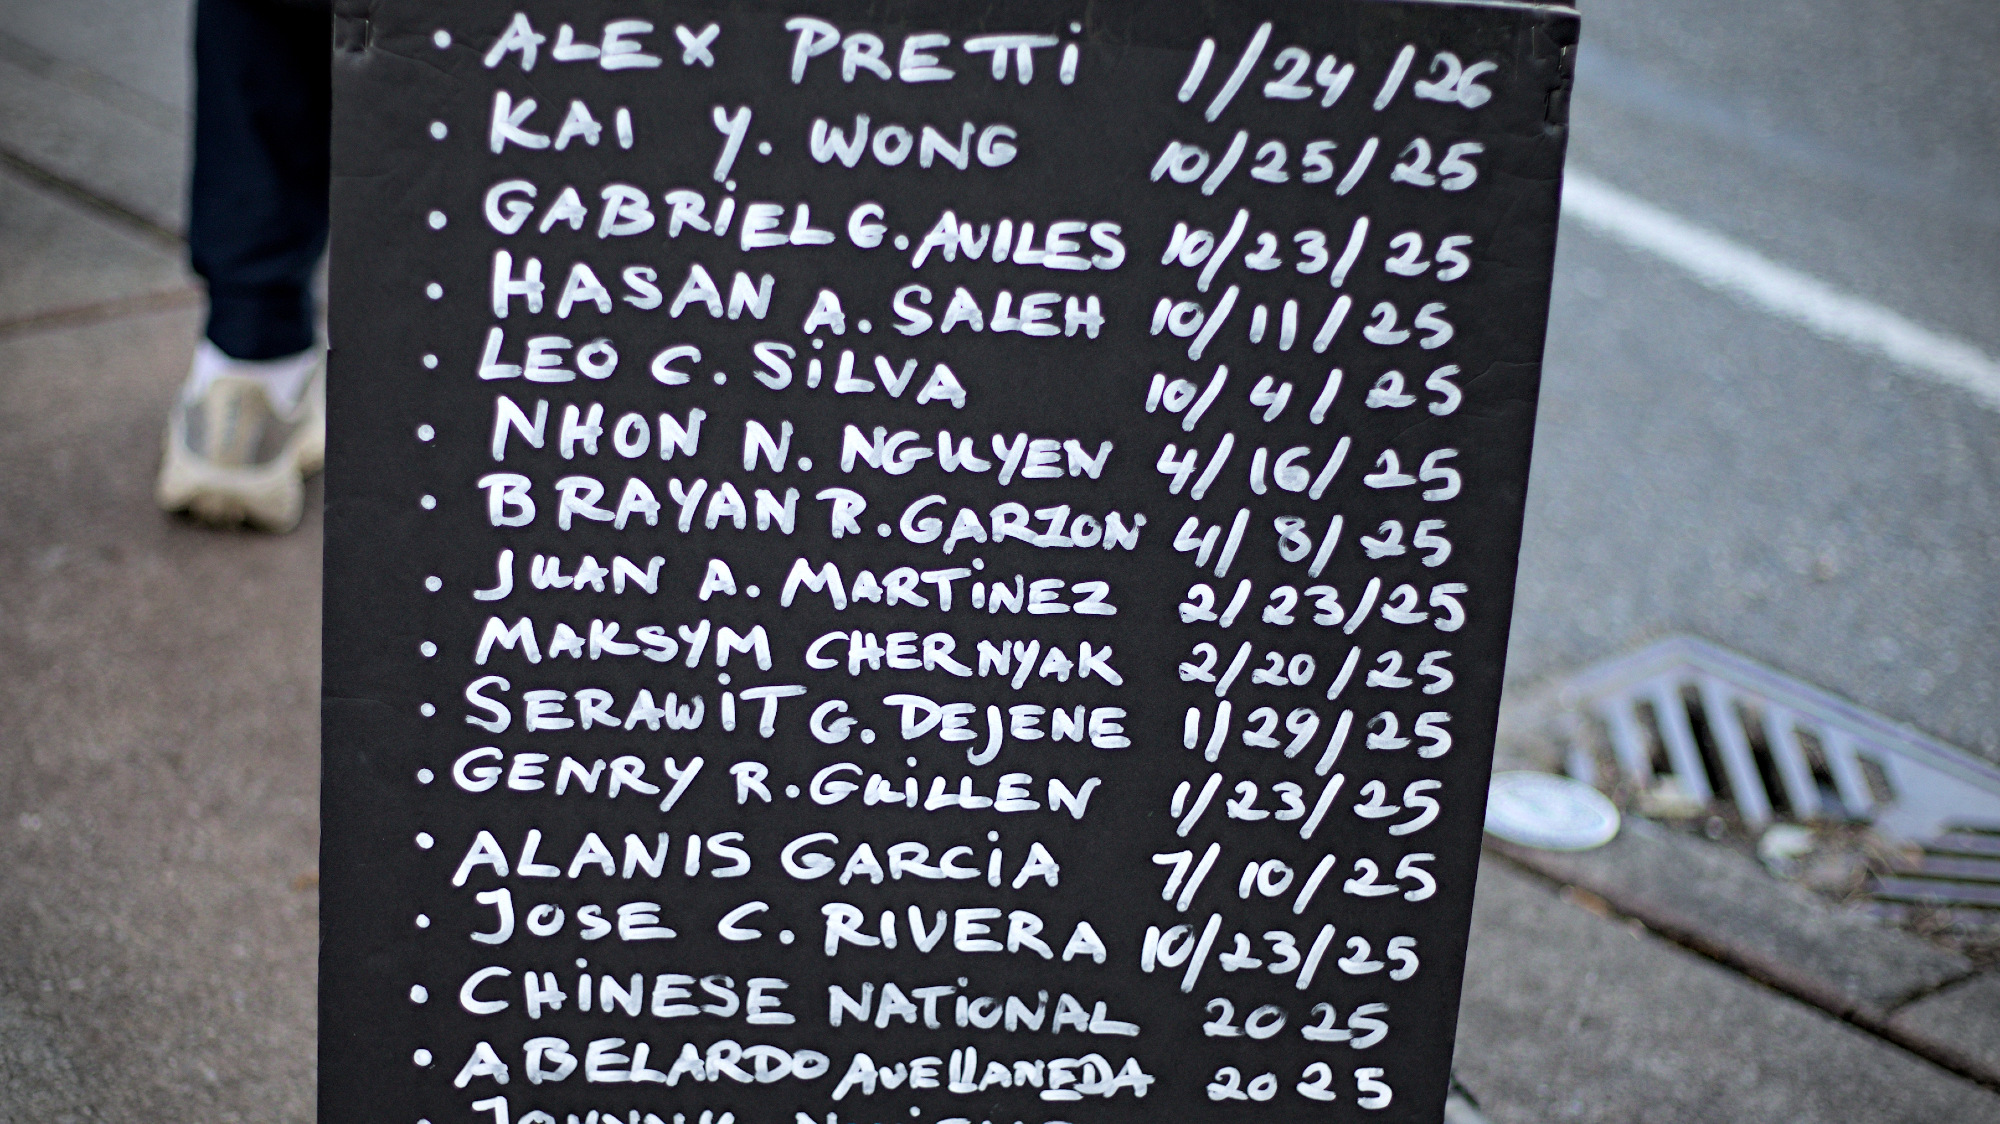 • ALEX PRETTi 1/24/26
• KAI Y. WONG 10/25/25
• GABRiEL G. AVILES 10/23/25
• HASAN A. SALEH 10/11/25
• LEO C. SiLVA 10/4/25
• NHON N. NGUYEN 4/16/25
• BRAYAN R. GARZON 4/8/25
• JUAN A. MARTiNEZ 2/23/25
• MAKSYM CHERNYAK 2/20/25
• SERAWiT G. DEJENE 1/29/25
• GENRY R. GUiLLEN 1/23/25
• ALANIS GARCiA 7/10/25
• JOSE C. RIVERA 10/23/25
• CHiNESE NATiONAL 2025
• ABELARDO AVEllANEDA 2025